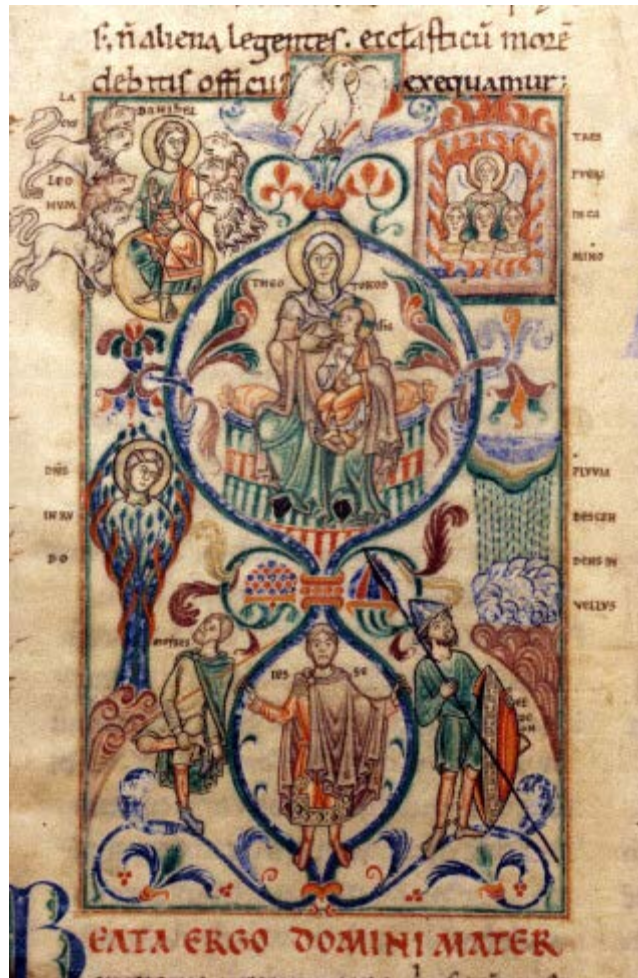 ñ aliena legentes. eccłasticū morē
debitis officii exequamur:
LA
CUS
LEO
NUM
DANIHEL
TRES
PVERI
IN CA
MINO
THEO TOKOS
DN̄S
IN RV
BO
PLVVIA
DESCEN
DENS IN
VELLVS
MOYSES
IES SE
GE
DE
ON
BEATA ERGO DOMINI MATER